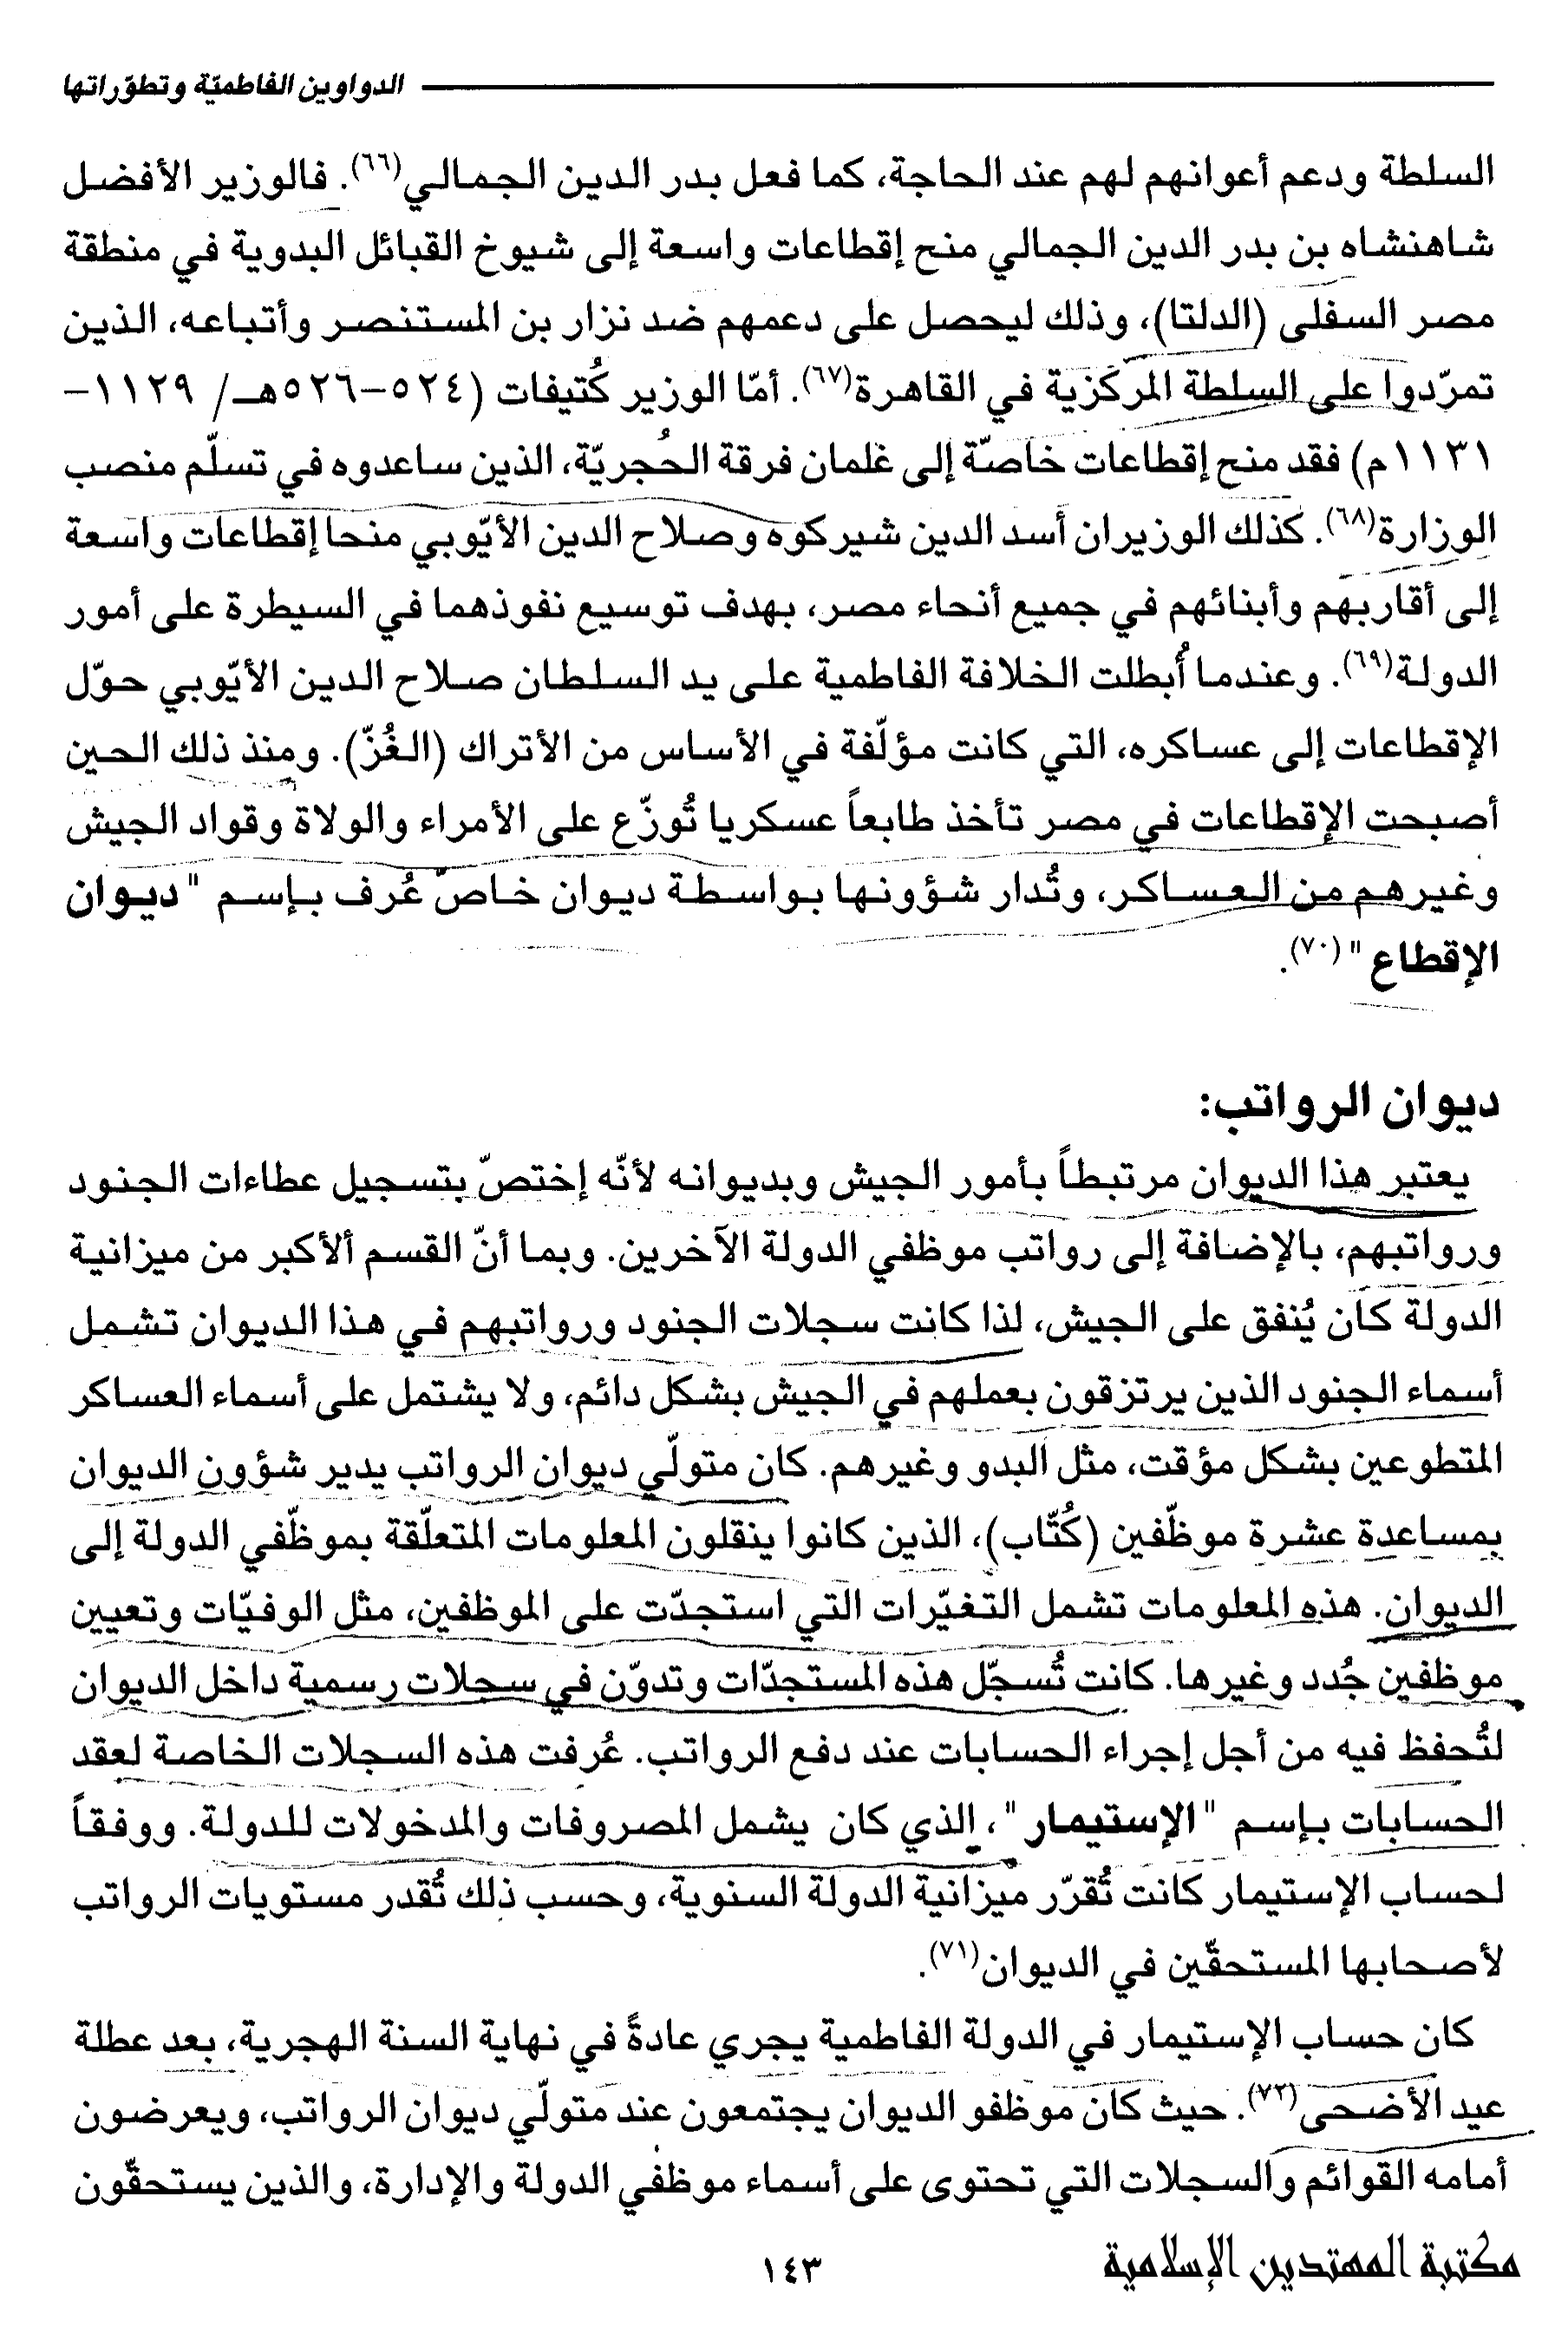 الدواوين الفاطميّة وتطوّراتها
السلطة ودعم أعوانهم لهم عند الحاجة، كما فعل بدر الدين الجمالي(٦٦). فالوزير الأفضل
شاهنشاه بن بدر الدين الجمالي منح إقطاعات واسعة إلى شيوخ القبائل البدوية في منطقة
مصر السفلى (الدلتا)، وذلك ليحصل على دعمهم ضد نزار بن المستنصر وأتباعه، الذين
تمرّدوا على السلطة المركزية في القاهرة(٦٧). أمّا الوزير كُتيفات (٥٢٤-٥٢٦هـ/ ١١٢٩-
١١٣١م) فقد منح إقطاعات خاصّة إلى غلمان فرقة الحُجريّة، الذين ساعدوه في تسلّم منصب
الوزارة(٦٨). كذلك الوزيران أسد الدين شيركوه وصلاح الدين الأيّوبي منحا إقطاعات واسعة
إلى أقاربهم وأبنائهم في جميع أنحاء مصر، بهدف توسيع نفوذهما في السيطرة على أمور
الدولة(٦٩). وعندما أُبطلت الخلافة الفاطمية على يد السلطان صلاح الدين الأيّوبي حوّل
الإقطاعات إلى عساكره، التي كانت مؤلّفة في الأساس من الأتراك (الغُزّ). ومنذ ذلك الحين
أصبحت الإقطاعات في مصر تأخذ طابعاً عسكريا تُوزّع على الأمراء والولاة وقواد الجيش
وغيرهم من العساكر، وتُدار شؤونها بواسطة ديوان خاصّ عُرف بإسم "ديوان
الإقطاع"(٧٠).
ديوان الرواتب:
يعتبر هذا الديوان مرتبطاً بأمور الجيش وبديوانه لأنّه إختصّ بتسجيل عطاءات الجنود
ورواتبهم، بالإضافة إلى رواتب موظفي الدولة الآخرين. وبما أنّ القسم ألأكبر من ميزانية
الدولة كان يُنفق على الجيش، لذا كانت سجلات الجنود ورواتبهم في هذا الديوان تشمل
أسماء الجنود الذين يرتزقون بعملهم في الجيش بشكل دائم، ولا يشتمل على أسماء العساكر
المتطوعين بشكل مؤقت، مثل البدو وغيرهم. كان متولّي ديوان الرواتب يدير شؤون الديوان
بمساعدة عشرة موظّفين (كُتّاب)، الذين كانوا ينقلون المعلومات المتعلّقة بموظّفي الدولة إلى
الديوان. هذه المعلومات تشمل التغيّرات التي استجدّت على الموظفين، مثل الوفيّات وتعيين
موظفين جُدد وغيرها. كانت تُسجّل هذه المستجدّات وتدوّن في سجلات رسمية داخل الديوان
لتُحفظ فيه من أجل إجراء الحسابات عند دفع الرواتب. عُرفت هذه السجلات الخاصة لعقد
الحسابات بإسم "الإستيمار"، الذي كان يشمل المصروفات والمدخولات للدولة. ووفقاً
لحساب الإستيمار كانت تُقرّر ميزانية الدولة السنوية، وحسب ذلك تُقدر مستويات الرواتب
لأصحابها المستحقّين في الديوان(٧١).
كان حساب الإستيمار في الدولة الفاطمية يجري عادةً في نهاية السنة الهجرية، بعد عطلة
عيد الأضحى(٧٢). حيث كان موظفو الديوان يجتمعون عند متولّي ديوان الرواتب، ويعرضون
أمامه القوائم والسجلات التي تحتوى على أسماء موظفي الدولة والإدارة، والذين يستحقّون
١٤٣
مكتبة المهتدين الإسلامية